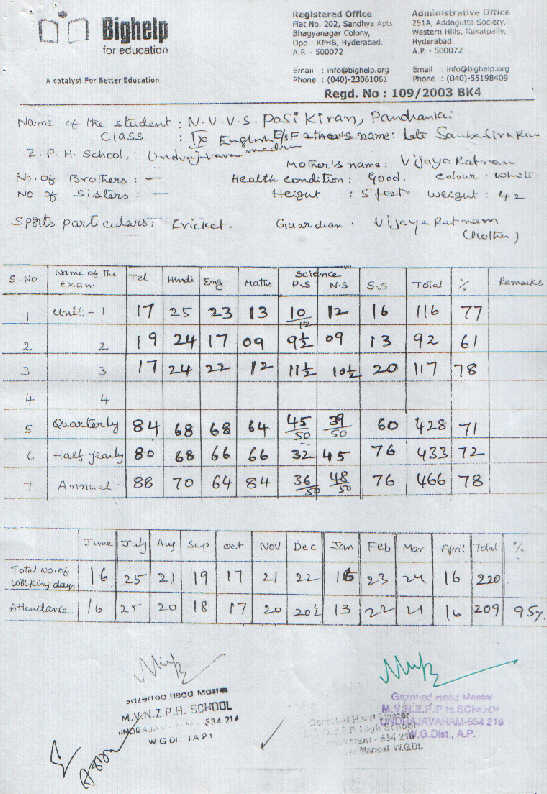 Bighelp
for education
A catalyst For Better Education
Registered Office
Flat No. 202, Sandhya Apts
Bhagyanagar Colony,
Opp. KPHB, Hyderabad.
A.P. - 500072
Email : info@bighelp.org
Phone : (040)-23061061
Administrative Office
251A, Addagutta Society,
Western Hills, Kukatpally,
Hyderabad
A.P. - 500072
Email : info@bighelp.org
Phone : (040)-55198409
Regd. No : 109/2003 BK4
Name of the student : N.V.V.S. Pasi Kiran,
Class : IX English Father's name: Late
Z.P.H. School,
Mother's name: Vijaya Ratnam
No. of Brothers : — Health condition: Good. colour: white
No of Sisters : — Height : 5 feet weight: 42
Sports particulars: Cricket. Guardian. Vijaya Ratnam
(Mother)
S.No Name of the Exam Tel Hindi Eng Maths Science P.S N.S S.S Total % Remarks
1 Unit - 1 17 25 23 13 10/12 12 16 116 77
2 2 19 24 17 09 9½ 09 13 92 61
3 3 17 24 22 12 11½ 10½ 20 117 78
4 4
5 Quarterly 84 68 68 64 45/50 39/50 60 428 71
6 Half yearly 80 68 66 66 32 45 76 433 72
7 Annual 88 70 64 84 36/50 48/50 76 466 78
June July Aug Sep Oct Nov Dec Jan Feb Mar April Total %
Total No. of working days 16 25 21 19 17 21 22 16 23 24 16 220
Attendance 16 25 20 18 17 20 20½ 13 22 21 16 209 95%
Head Master
M.V.N.Z.P.H. SCHOOL
534 216
W.G.Dt. (A.P)
Gazetted Head Master
UNDRAJAVARAM-534 216
W.G.Dist., A.P.